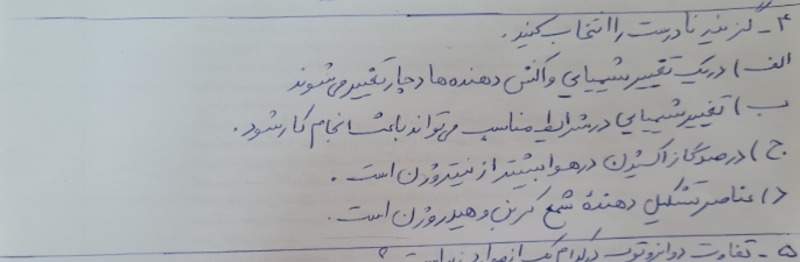 ۴ـ گزینه نادرست را انتخاب کنید.
الف) در یک تغییر شیمیایی واکنش دهنده ها دچار تغییر می شوند
ب) تغییر شیمیایی در شرایط مناسب می تواند باعث انجام کار شود.
ج) درصد گاز اکسیژن در هوا بیشتر از نیتروژن است.
د) عناصر تشکیل دهندهٔ شمع کربن و هیدروژن است.
۵ـ تفاوت دو ایزوتوپ در کدام یک از موارد زیر است؟